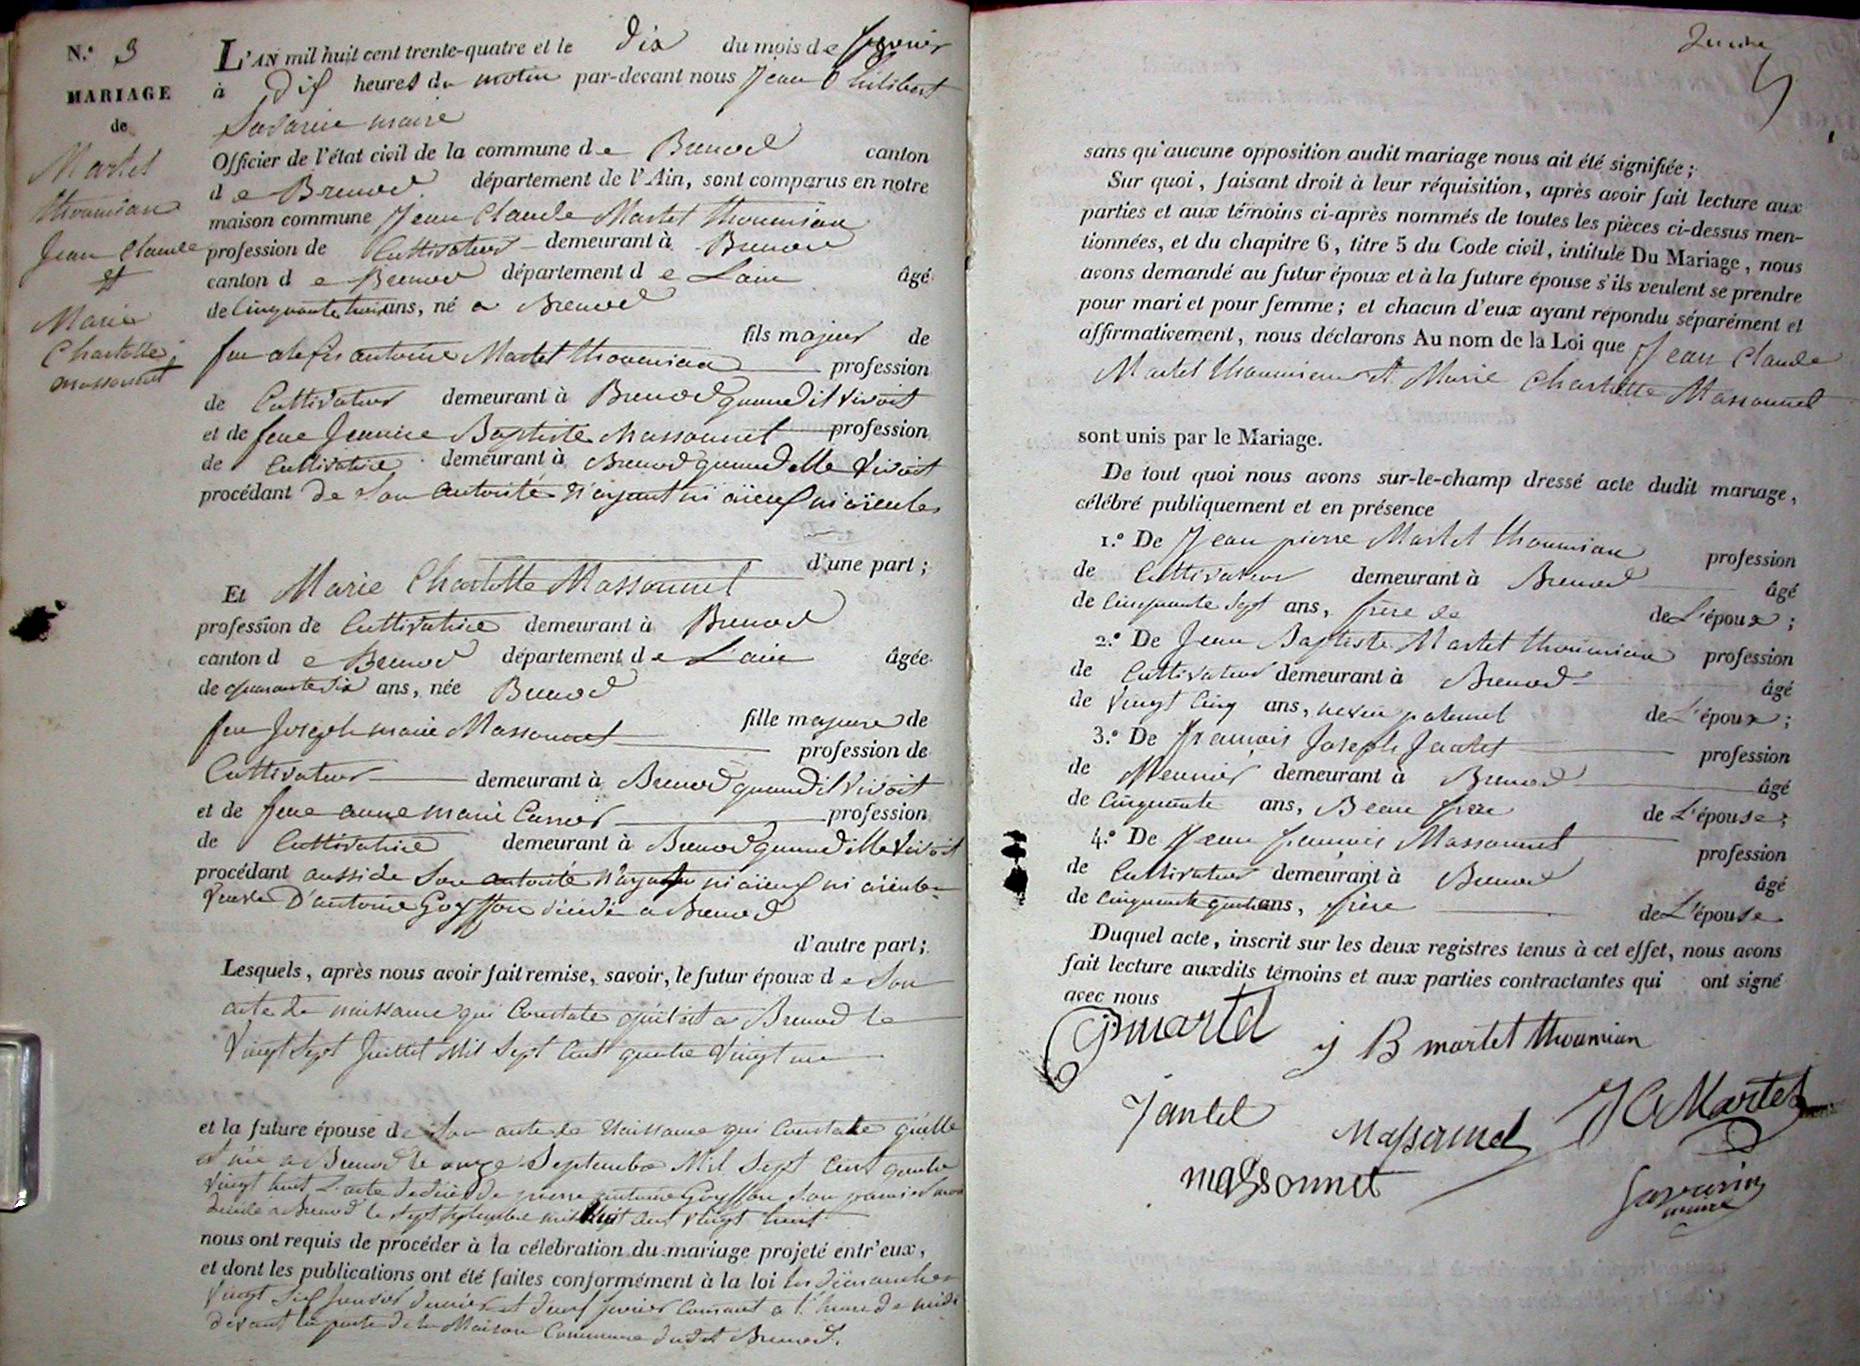 N.º 3
MARIAGE
de
Martel
thoumian
Jean Claude
et
Marie
Charlotte
massonnet
L'AN mil huit cent trente-quatre et le dix du mois de fevrier
à dix heures du matin par-devant nous Jean Philibert
Savarin maire
Officier de l'état civil de la commune de Brenod canton
de Brenod département de l'Ain, sont comparus en notre
maison commune Jean Claude Martel thoumian
profession de Cultivateur demeurant à Brenod
canton de Brenod département de Lain âgé
de Cinquante trois ans, né a Brenod
fils majeur de
feu alexis antoine Martel thoumian profession
de Cultivateur demeurant à Brenod quand il vivoit
et de feue Jeanne Baptiste Massonnet profession
de Cultivatrice demeurant à Brenod quand elle vivoit
procédant de Son autorité n'ayant ni aïeux ni aïeules
d'une part ;
Et Marie Charlotte Massonnet
profession de Cultivatrice demeurant à Brenod
canton de Brenod département de L'ain âgée
de quarante six ans, née Brenod
fille majeure de
feu Joseph marie Massonnet profession de
Cultivateur demeurant à Brenod quand il vivoit
et de feue anne marie Carrier profession
de Cultivatrice demeurant à Brenod quand elle vivoit
procédant aussi de Son autorité n'ayant ni aïeux ni aïeules
veuve D'antoine Goyffon décédé a Brenod
d'autre part ;
Lesquels, après nous avoir fait remise, savoir, le futur époux de Son
acte de naissance qui Constate qu'il est a Brenod le
Vingt Sept Juillet Mil Sept Cent quatre Vingt un
et la future épouse de Son acte de Naissance qui Constate qu'elle
est née a Brenod le onze Septembre Mil Sept Cent quatre
vingt huit L'acte de décès de pierre antoine Goyffon Son premier mari
décédé a Brenod le sept septembre mil huit cent vingt huit
nous ont requis de procéder à la célébration du mariage projeté entr'eux,
et dont les publications ont été faites conformément à la loi les dimanches
Vingt Six Janvier dernier et deux fevrier Courant a l'heure de midi
devant la porte de la Maison Commune dudit Brenod.
sans qu'aucune opposition audit mariage nous ait été signifiée ;
Sur quoi, faisant droit à leur réquisition, après avoir fait lecture aux
parties et aux témoins ci-après nommés de toutes les pièces ci-dessus men-
tionnées, et du chapitre 6, titre 5 du Code civil, intitulé Du Mariage, nous
avons demandé au futur époux et à la future épouse s'ils veulent se prendre
pour mari et pour femme ; et chacun d'eux ayant répondu séparément et
affirmativement, nous déclarons Au nom de la Loi que Jean Claude
Martel thoumian et Marie Charlotte Massonnet
sont unis par le Mariage.
De tout quoi nous avons sur-le-champ dressé acte dudit mariage,
célébré publiquement et en présence
1.º De Jean pierre Martel thoumian profession
de Cultivateur demeurant à Brenod âgé
de Cinquante Sept ans, frère de de L'époux ;
2.º De Jean Baptiste Martel thoumian profession
de Cultivateur demeurant à Brenod âgé
de Vingt Cinq ans, neveu paternel de L'époux ;
3.º De françois Joseph Jantet profession
de Meunier demeurant à Brenod âgé
de Cinquante ans, Beau frère de L'épouse ;
4.º De Jean françois Massonnet profession
de Cultivateur demeurant à Brenod âgé
de Cinquante quatre ans, frère de L'épouse
Duquel acte, inscrit sur les deux registres tenus à cet effet, nous avons
fait lecture auxdits témoins et aux parties contractantes qui ont signé
avec nous
martel
j B martel thoumian
Jantet
Massonnet
J C Martel
massonnet
Savarin
maire